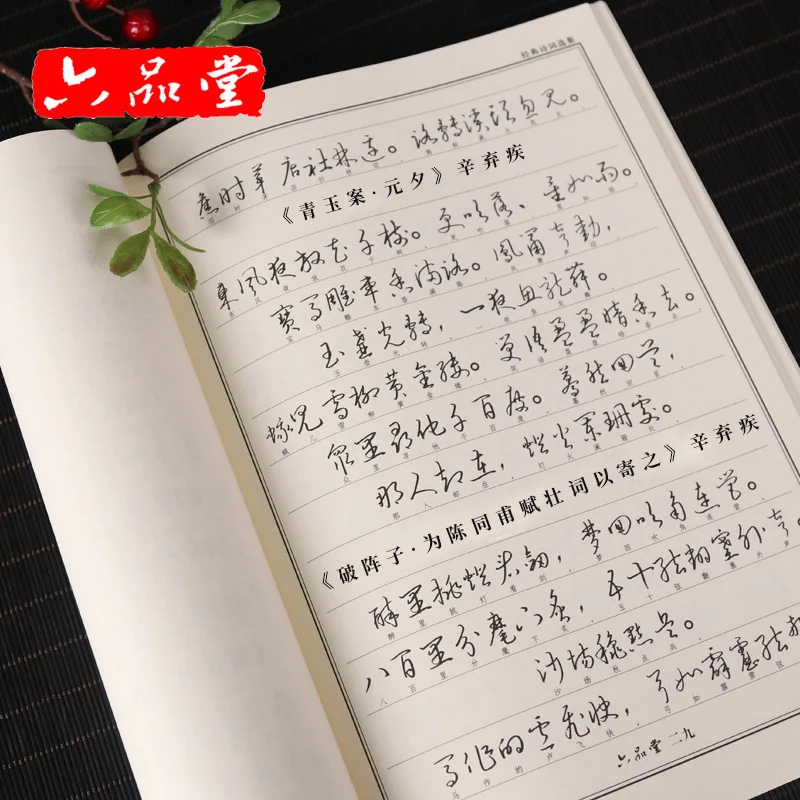 六品堂
经典诗词选集
旧时茅店社林边。路转溪头忽见。
《青玉案·元夕》辛弃疾
东风夜放花千树。更吹落、星如雨。
宝马雕车香满路。凤箫声动，
玉壶光转，一夜鱼龙舞。
蛾儿雪柳黄金缕。笑语盈盈暗香去。
众里寻他千百度。蓦然回首，
那人却在，灯火阑珊处。
《破阵子·为陈同甫赋壮词以寄之》辛弃疾
醉里挑灯看剑，梦回吹角连营。
八百里分麾下炙，五十弦翻塞外声
沙场秋点兵。
马作的卢飞快，弓如霹雳弦
六品堂 二九